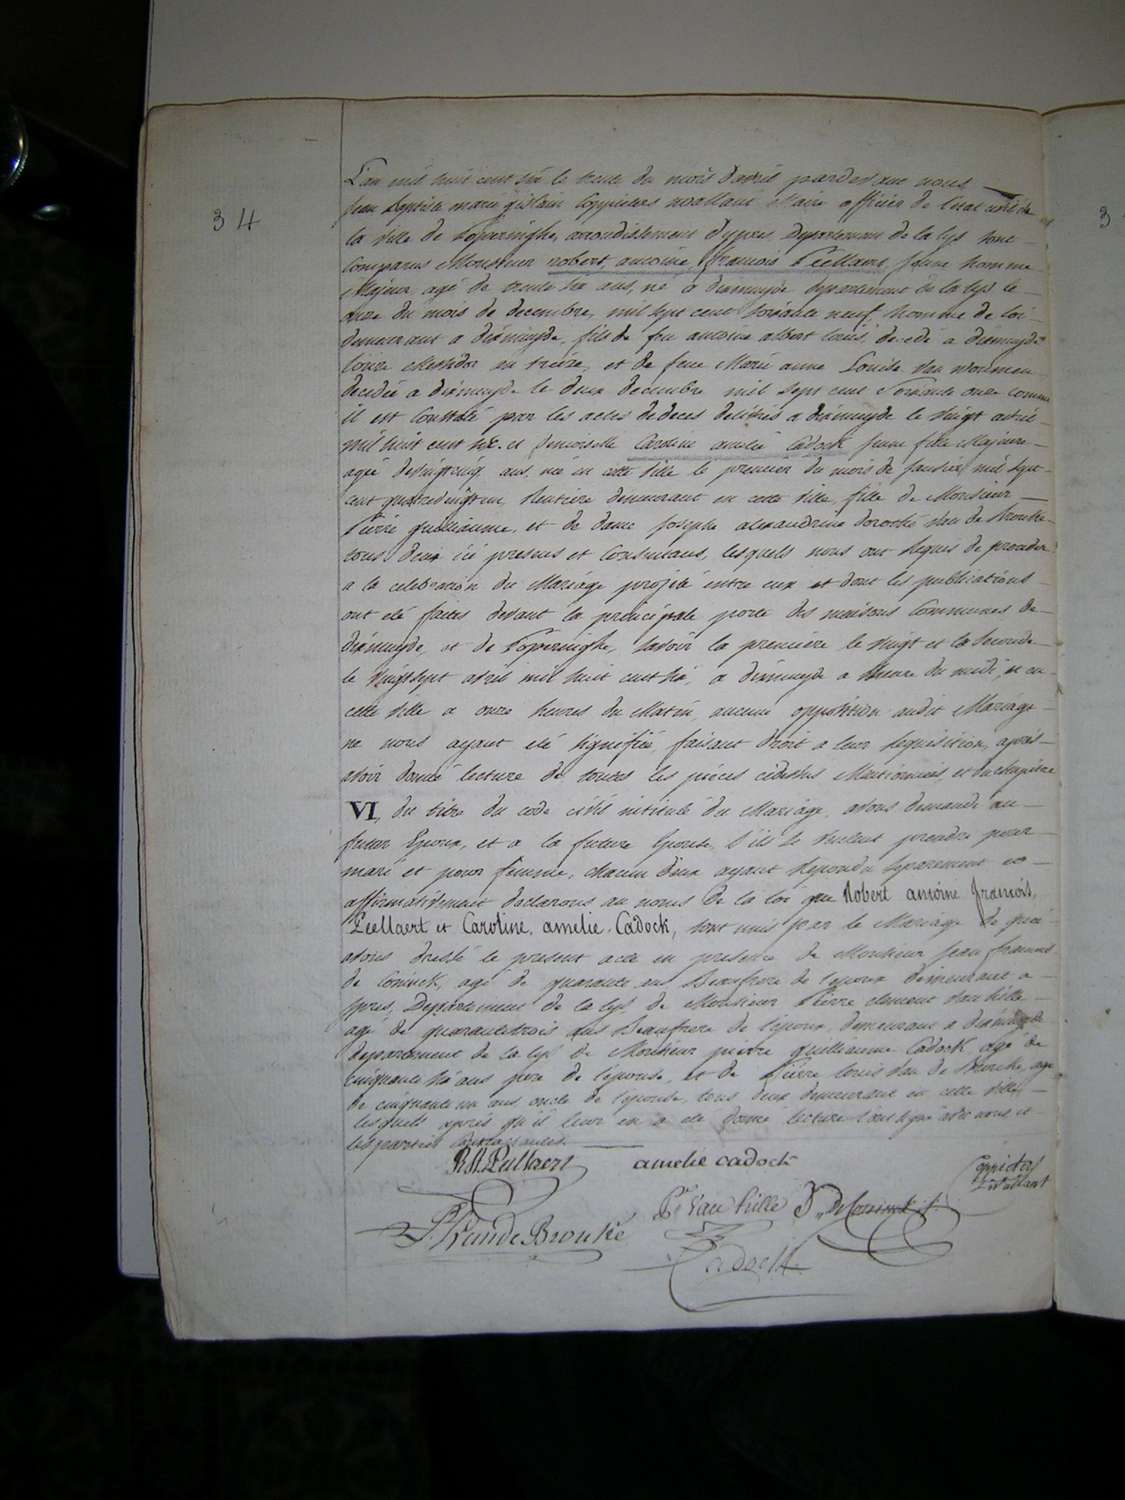 34
L'an mil huit cent six le trente du mois d'avril pardevant nous
jean Baptiste marie gislain Coppieters wallant Maire officier de l'etat civil de
la ville de Poperinghe, arrondissement d'ypres, Departement de la lys sont
Comparus Monsieur robert, antoine, françois Peellaert, jeune homme
Majeur, agé de trente six ans, né a dixmuyde departement de la lys le
onze du mois de decembre, mil sept cent soixante neuf, homme de loi
demeurant a dixmuyde, fils de feu antoine albert louis, decedé a dixmuyde
Messidor an treize, et de feue Marie anne Louise van
decedée a dixmuyde le deux decembre mil sept cent soixante onze comme
il est Constaté par les actes de deces delivrés a dixmuyde le vingt avril
mil huit cent six. et demoiselle Caroline amelie Cadock jeune fille Majeure
agée de vingt cinq ans, née en cette ville le premier du mois de janvier mil sept
cent quatrevingt un, Rentiere demeurant en cette ville, fille de Monsieur
Pierre guilliaume, et de dame josephe alexandrine dorothé van de Brouke
tous deux ici presens et Consentans, lesquels nous ont requis de proceder
a la celebration du Mariage projeté entre eux et dont les publications
ont été faites devant la principale porte des maisons Communes de
dixmuyde, et de Poperinghe, savoir la premiere le vingt et la seconde
le vingt sept avril mil huit cent six, a dixmuyde a heure du midi, et en
cette ville a onze heures du Matin, aucune opposition audit Mariage
ne nous ayant eté signifiée, faisant droit a leur requisition, après
avoir donné lecture de toutes les pièces cidessus Mentionnées, et du chapitre
VI, du titre du code civil intitulé du Mariage, avons demandé au
futur Epoux, et a la future Epouse, s'ils se veulent prendre pour
mari et pour femme, chacun d'eux ayant repondu separement et
affirmativement declarons au nom de la loi que Robert antoine François,
Peellaert et Caroline, amelie, Cadock, sont unis par le Mariage de quoi
avons dressé le present acte en presence de Monsieur jean francois
de Coninck, agé de quarante ans Beaufrere de l'epoux demeurant a
ypres, Departement de la lys de Monsieur Pierre clement van hille
agé de quarantetrois ans Beaufrere de l'epoux, demeurant a dixmuyde
departement de la lys de Monsieur pierre guilliaume Cadock, agé de
cinquante six ans pere de l'epouse, et de Pierre louis van de Brouke, agé
de cinquante un ans, oncle de l'epouse, tous deux demeurant en cette ville
lesquels après qu'il leur en a eté donné lecture l'ont signé avec nous et
les parties contractantes.
R.A. Peellaert amelie cadock Coppieters
Wallant
Pr Van hille J. De Coninck
P. L. Van de Brouke
Cadock